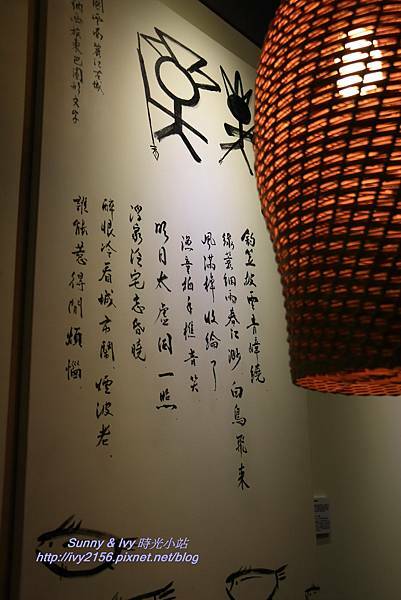 釣笠披雲青嶂繞
綠蓑細雨春江渺 白鳥飛來
風滿棹 收綸了
漁童拍手樵青笑
明月太虛同一照
浮家泛宅忘昏曉
醉眼冷看城市鬧 煙波老
誰能惹得閒煩惱
納西族東巴圖形文字
Sunny & Ivy 時光小站
http://ivy2156.pixnet.net/blog